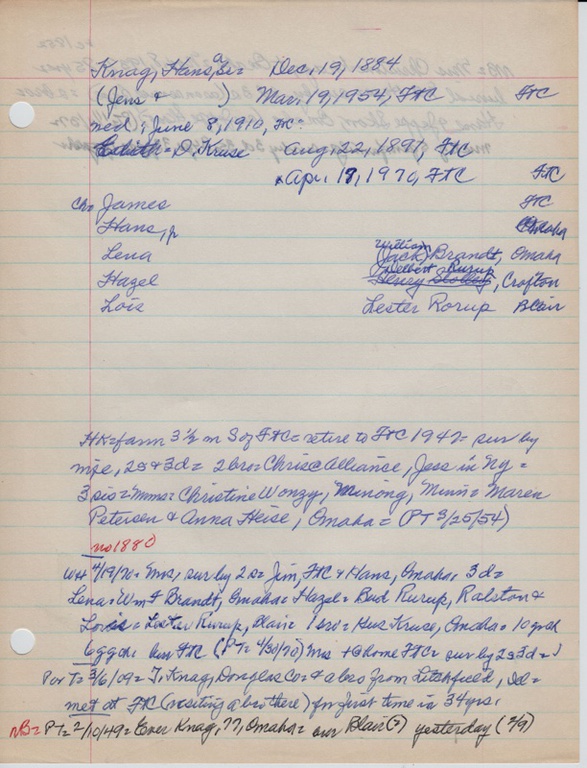 Knag, Hans, a Sr= Dec. 19, 1884
(Jens & ) Mar. 19, 1954, FTC FTC
med; June 8, 1910, FC=
Edith= D. Kruse Aug. 22, 1891, FTC
Apr. 18, 1970, FTC FTC
Ch= James FTC
Hans, Jr Omaha
Lena William (Jack) Brandt, Omaha
Hazel Delbert Rurup Henry Stolley, Crofton
Lois Lester Rorup Blair
HK= farm 3 ½ m S of FTC= retire to FTC 1942= sur by
mse, 2s & 3d= 2 bro= Chris @ Alliance, Jess in Ny=
3 sis= Mmes= Christine Wonzy, Minong, Minn= Maren
Petersen & Anna Heise, Omaha= (PT 3/25/54)
no 1880
W&H 4/19/70= Mrs, sur by 2 s= Jim, FTC & Hans, Omaha, 3 d=
Lena= Wm F Brandt, Omaha= Hazel= Bud Rurup, Ralston &
Lois= Lester Rurup, Blair= 1 bro= Gus Kruse, Omaha= 10 gch
6 ggch= bur FTC (PT= 4/30/70) Mrs + @ home FTC= sur by 2s 3d=
Por T= 3/6/09= J. Knag, Douglas Co= & a bro from Litchfield, Ill=
met at FTC (visiting a bro there) for first time in 34 yrs.
NB= PT= 2/10/49= Ever Knag, 77, Omaha= our Blair (?) yesterday (2/9)